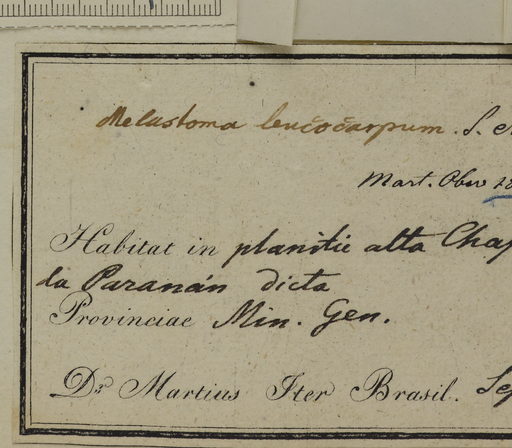 Melastoma leucocarpum. S.
Mart. Obs
Habitat in planitie alta Chap
da Paranán dicta
Provinciae Min. Gen.
Dr. Martius Iter Brasil. Sep